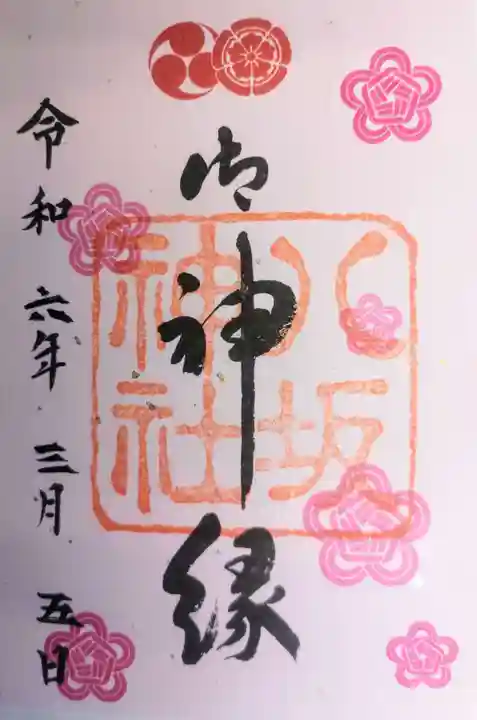 御神縁
八坂
神社
令和 六年 三月 五日